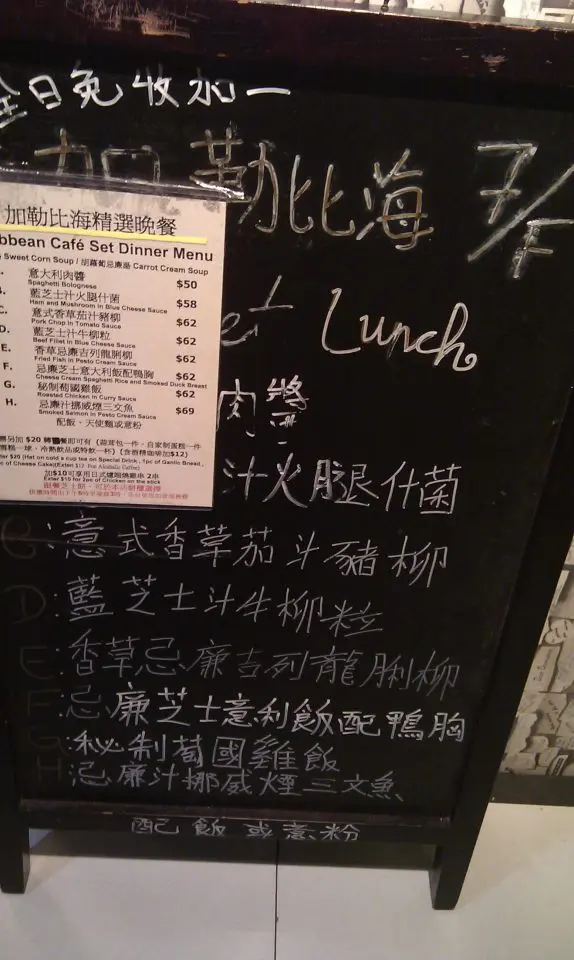 全日免收加一
加勒比海 7/F
加勒比海精選晚餐
bbean Café Set Dinner Menu
Sweet Corn Soup / 胡蘿蔔忌廉湯 Carrot Cream Soup
意大利肉醬 $50
Spaghetti Bolognese
藍芝士汁火腿什菌 $58
Ham and Mushroom in Blue Cheese Sauce
C. 意式香草茄汁豬柳 $62
Pork Chop in Tomato Sauce
D. 藍芝士汁牛柳粒 $62
Beef Fillet in Blue Cheese Sauce
E. 香草忌廉吉列龍脷柳 $62
Fried Fish in Pesto Cream Sauce
F. 忌廉芝士意大利飯配鴨胸 $62
Cheese Cream Spaghetti Rice and Smoked Duck Breast
G. 秘制葡國雞飯 $62
Roasted Chicken in Curry Sauce
H. 忌廉汁挪威煙三文魚 $69
Smoked Salmon in Pesto Cream Sauce
配飯、天使麵或意粉
et Lunch
肉醬
汁火腿什菌
C:意式香草茄汁豬柳
D:藍芝士汁牛柳粒
E:香草忌廉吉列龍脷柳
F:忌廉芝士意利飯配鴨胸
G:秘制葡國雞飯
H:忌廉汁挪威煙三文魚
配飯或意粉